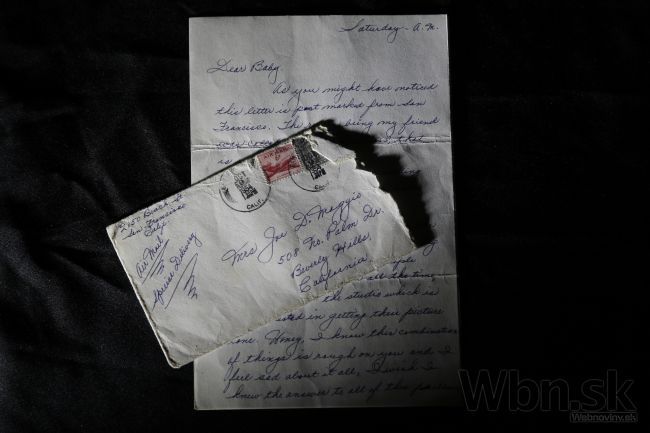 Saturday - A.M.
Dear Baby,
As you might have noticed
this letter is post marked from San
Francisco. The being my friend
that
is
AIR MAIL
6¢
CALIF.
CALIF.
2150 Beach St.
San Francisco
Calif.
Air Mail
Special Delivery
Mrs Joe D. Maggio
508 No. Palm Dr.
Beverly Hills
California
all the time
the studio which is
in getting their picture
one. Honey, I know this combination
of things is rough on you and I
feel sad about it all, I wish I
knew the answer to all of this
Wbn.sk
Webnoviny.sk